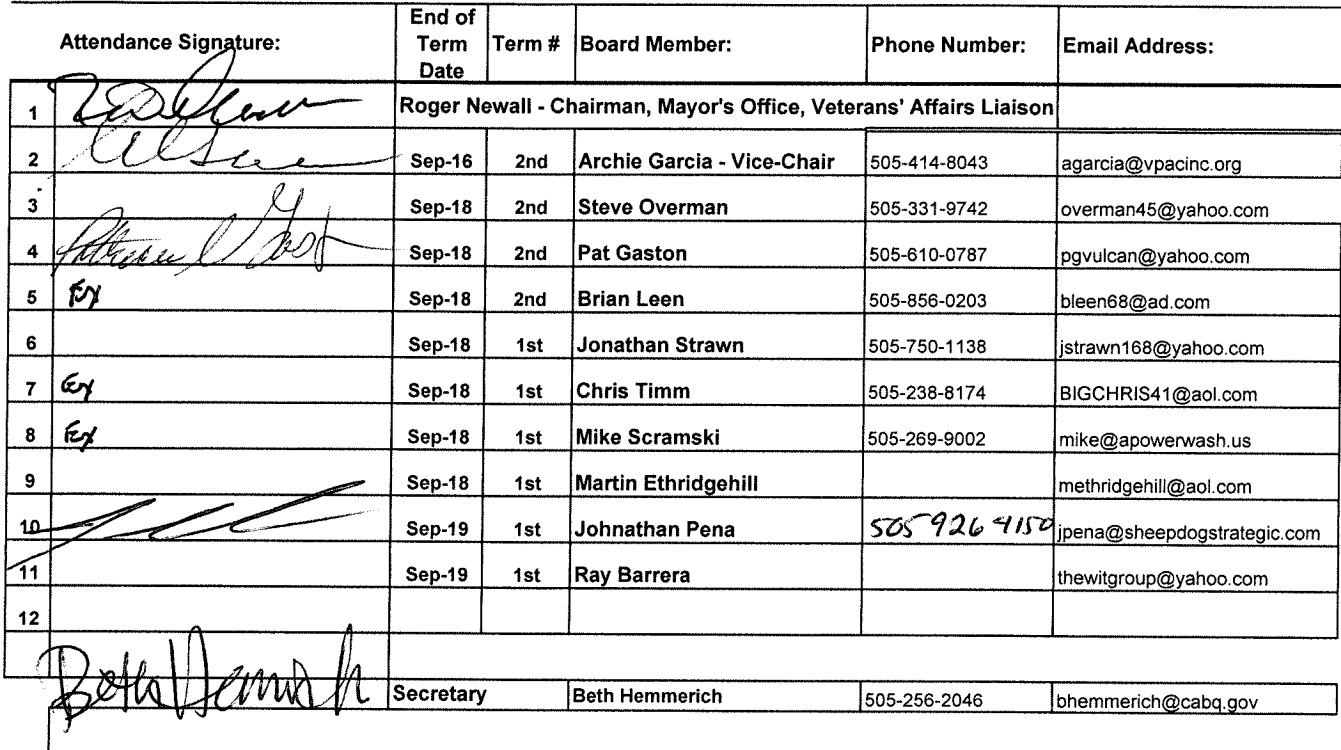 Attendance Signature: End of Term Date Term # Board Member: Phone Number: Email Address:
1 Roger Newall - Chairman, Mayor's Office, Veterans' Affairs Liaison
2 Sep-16 2nd Archie Garcia - Vice-Chair 505-414-8043 agarcia@vpacinc.org
3 Sep-18 2nd Steve Overman 505-331-9742 overman45@yahoo.com
4 Sep-18 2nd Pat Gaston 505-610-0787 pgvulcan@yahoo.com
5 Ex Sep-18 2nd Brian Leen 505-856-0203 bleen68@ad.com
6 Sep-18 1st Jonathan Strawn 505-750-1138 jstrawn168@yahoo.com
7 Ex Sep-18 1st Chris Timm 505-238-8174 BIGCHRIS41@aol.com
8 Ex Sep-18 1st Mike Scramski 505-269-9002 mike@apowerwash.us
9 Sep-18 1st Martin Ethridgehill methridgehill@aol.com
10 Sep-19 1st Johnathan Pena 505 926 4150 jpena@sheepdogstrategic.com
11 Sep-19 1st Ray Barrera thewitgroup@yahoo.com
12
Beth Hemmerich Secretary Beth Hemmerich 505-256-2046 bhemmerich@cabq.gov